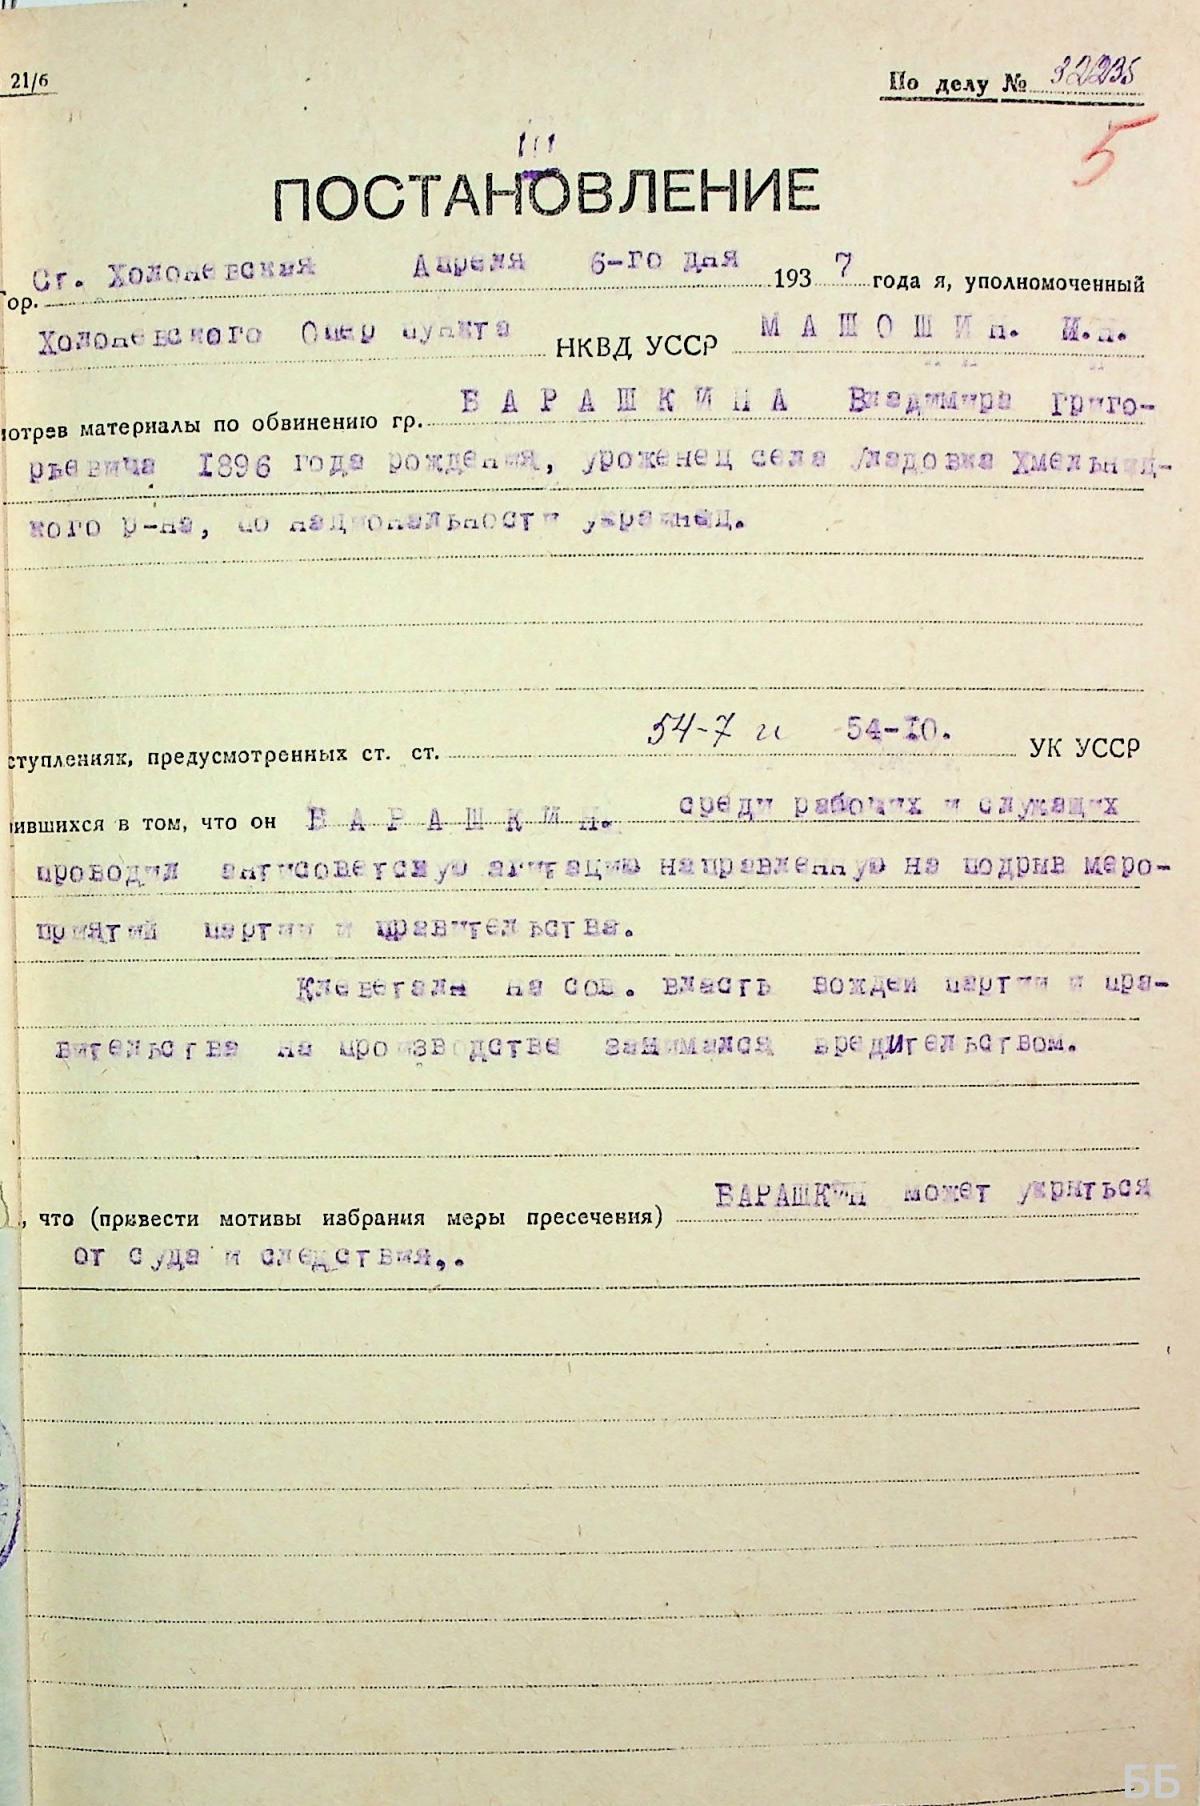 21/6
По делу № 32235
5
ПОСТАНОВЛЕНИЕ
Гор. Ст. Холоневская Апреля 6-го дня 1937 года я, уполномоченный
Холоневского Опер пункта НКВД УССР МАШОШИН. И.Н.
мотрев материалы по обвинению гр. БАРАШКИНА Владимира Григо-
рьевича 1896 года рождения, уроженец села Уладовка Хмельниц-
кого р-на, по национальности украинец.
ступлениях, предусмотренных ст. ст. 54-7 и 54-10. УК УССР
ившихся в том, что он БАРАШКИН. среди рабочих и служащих
проводил антисоветскую агитацию направленную на подрыв меро-
приятий партии и правительства.
Клеветаля на сов. власть вождей партии и пра-
вительства на производстве занимался вредительством.
, что (привести мотивы избрания меры пресечения) БАРАШКИН может укрыться
от суда и следствия,.
ББ